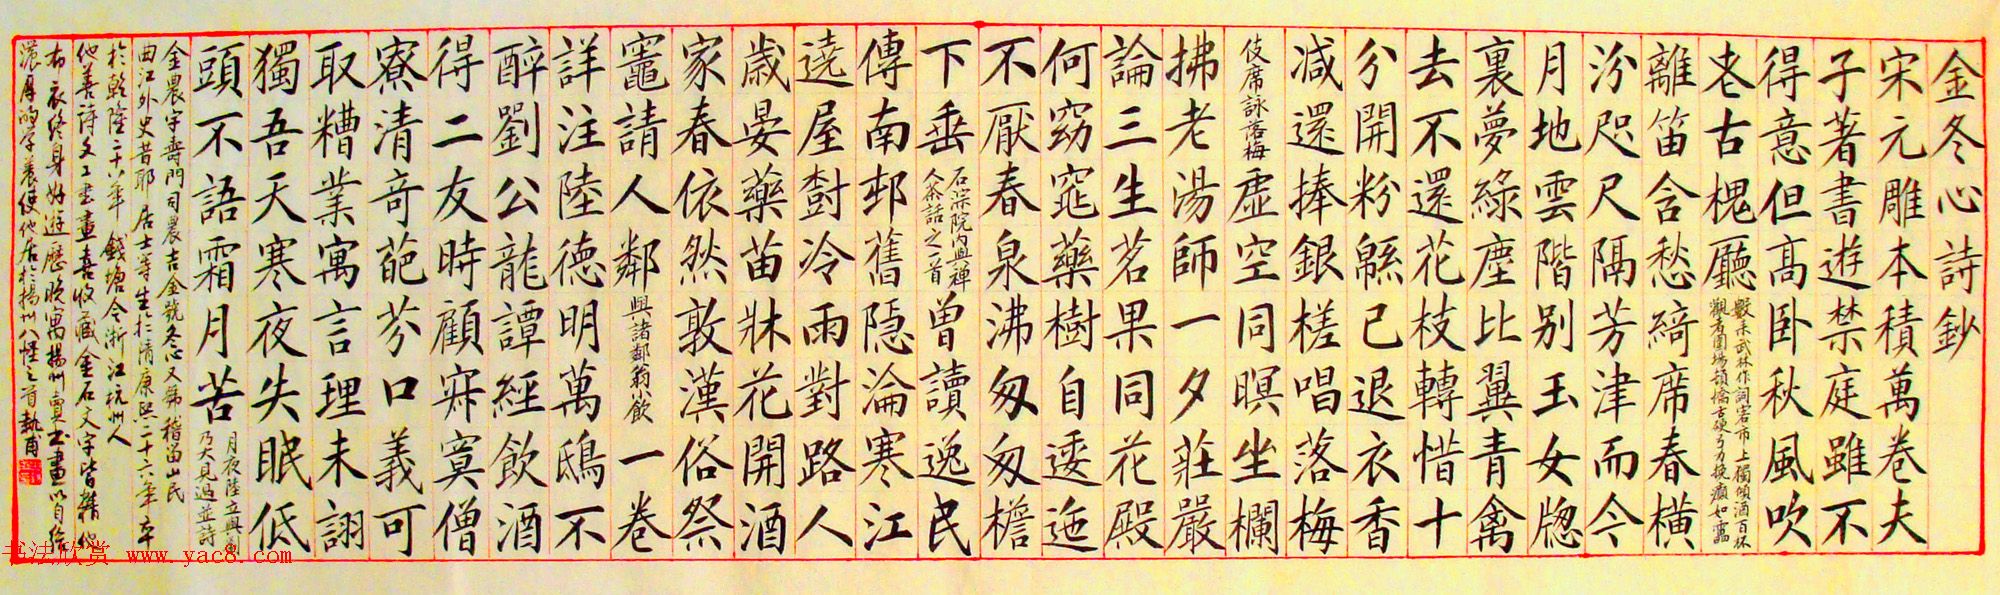 金冬心詩鈔
宋元雕本積萬卷夫
子著書遊禁庭雖不
得意但高卧秋風吹
老古槐廳
武林作詞客市上獨傾酒百杯
觀者圍場頓僑古硬
離笛含愁綺席春橫
汾咫尺隔芳津而今
月地雲階別玉女牕
裏夢綠塵比翼青禽
去不還花枝轉惜十
分開粉緜已退衣香
減還捧銀槎唱落梅
伎席詠落梅 虛空同暝坐欄
拂老湯師一夕莊嚴
論三生茗果同花殿
何窈窕藥樹自逶迤
不厭春泉沸匆匆檐
下垂
石淙院內與禪
人茶話之一首
曾讀逸民
傳南邨舊隱淪寒江
遶屋尌冷雨對路人
歲晏藥苗牀花開酒
家春依然敦漢俗祭
竈請人鄰 與諸鄰翁小飲 一卷
詳注陸德明萬鴟不
醉劉公龍譚經飲酒
得二友時顧寂寞僧
寮清奇葩芬口義可
取糟業寓言理未詡
獨吾天寒夜失眠低
頭不語霜月苦
月夜陸立與
乃大見過並詩
金農字壽門司農吉金號冬心又號稽留山民
曲江外史昔耶居士等生於清康熙二十六年卒
於乾隆二十八年 錢塘今浙江杭州人
他善詩文工書畫喜收藏金石文字皆精他
布衣終身好遊歷晚寓揚州賣書畫以自給
濃厚的學養使他居於揚州八怪之首 執甫
书法欣赏 www.yac8.com